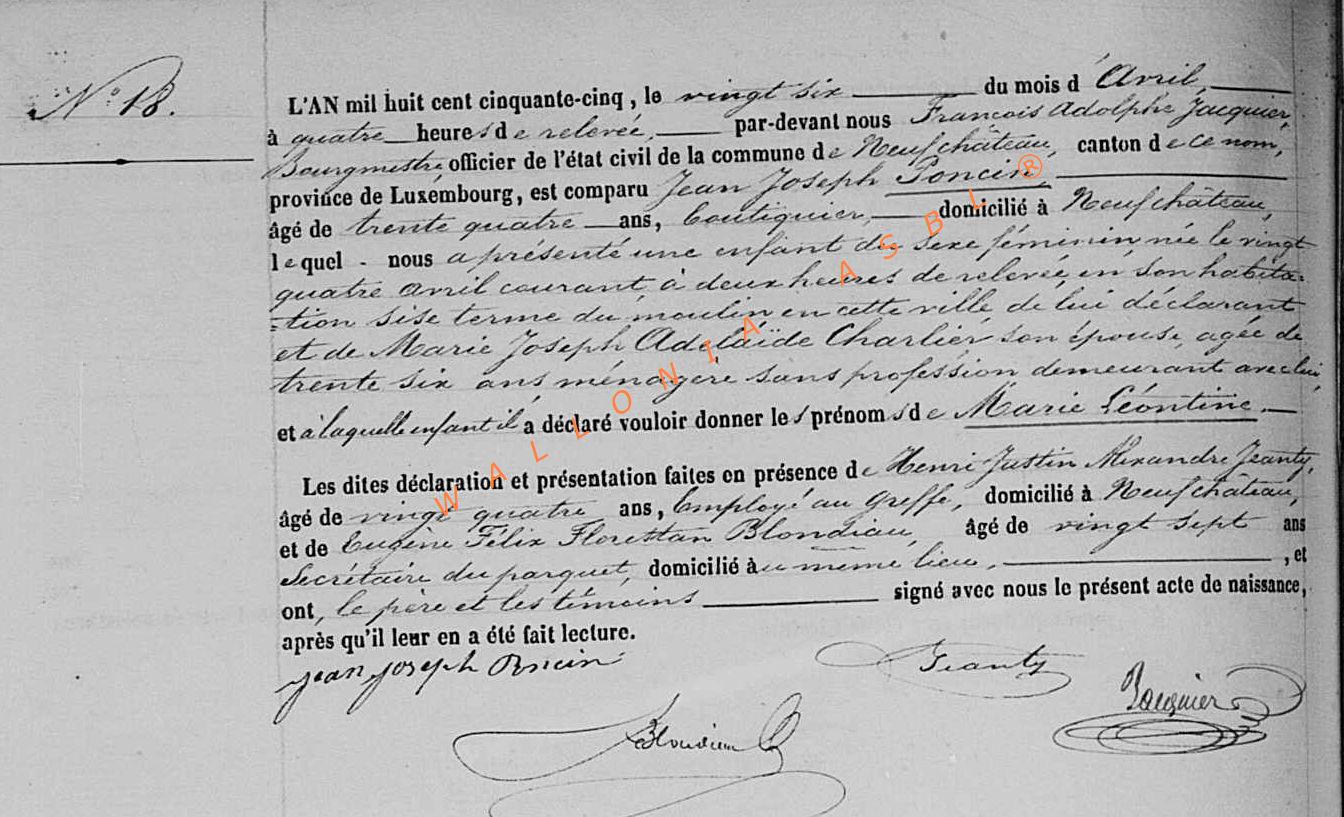 N° 18.
L'AN mil huit cent cinquante-cinq, le vingt six du mois d'Avril,
à quatre heures de relevée, par-devant nous François Adolphe Jacquier,
Bourgmestre, officier de l'état civil de la commune de Neufchâteau, canton de ce nom,
province de Luxembourg, est comparu Jean Joseph Poncin,
âgé de trente quatre ans, boutiquier, domicilié à Neufchâteau,
lequel - nous a présenté une enfant du sexe féminin née le vingt
quatre avril courant, à deux heures de relevée, en son habita-
-tion sise terme du moulin en cette ville de lui déclarant
et de Marie Joseph Adelaïde Charlier son épouse, agée de
trente six ans ménagère sans profession demeurant avec lui,
et à laquelle enfant il a déclaré vouloir donner les prénoms de Marie Léontine
Les dites déclaration et présentation faites en présence de Henri Justin Alexandre Jeanty,
âgé de vingt quatre ans, Employé au greffe, domicilié à Neufchâteau,
et de Eugène Félix Florestan Blondiau, âgé de vingt sept ans
Secrétaire du parquet, domicilié au même lieu, , et
ont, le père et les témoins signé avec nous le présent acte de naissance,
après qu'il leur en a été fait lecture.
Jean Joseph Poncin
Jeanty
Jacquier
Blondiau
WALLONIA ASBL®